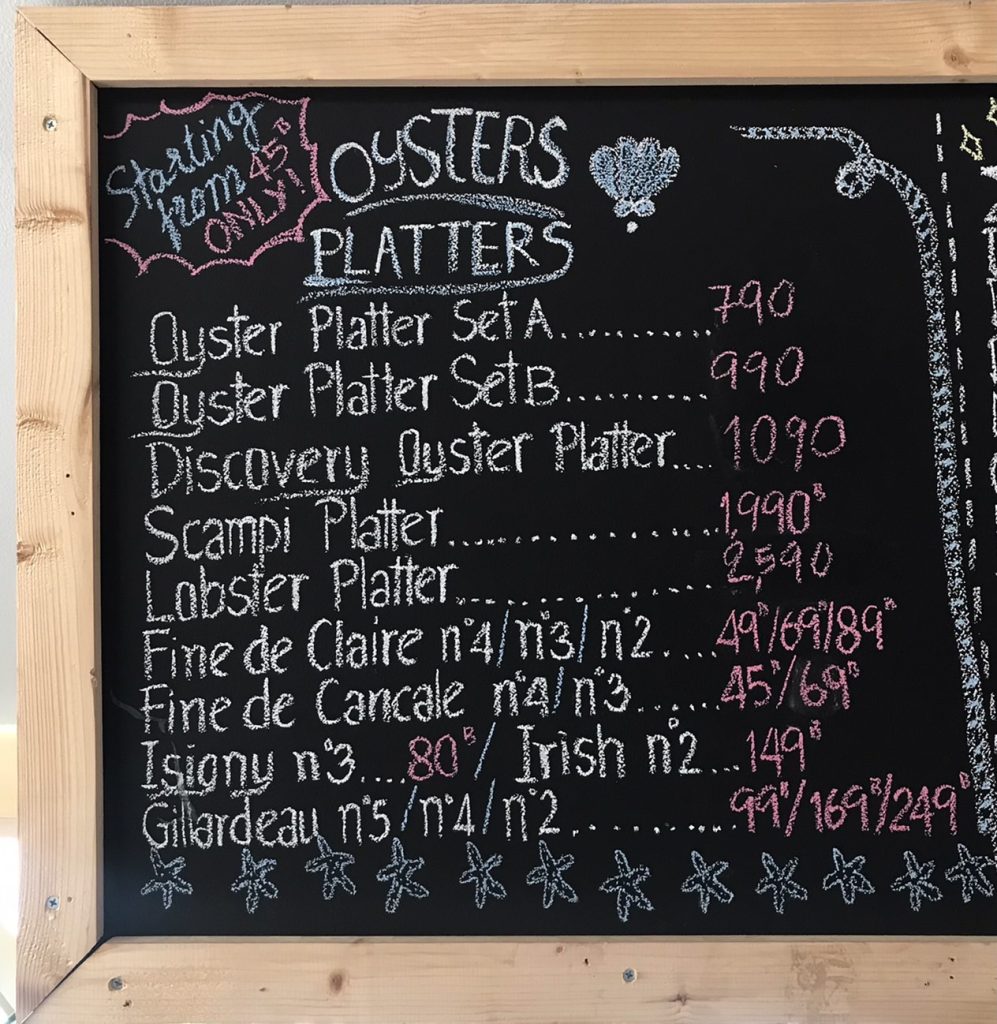 Starting
from
45฿
ONLY!
OYSTERS
PLATTERS
Oyster Platter Set A.............. 790
Oyster Platter Set B............ 990
Discovery Oyster Platter.... 1090
Scampi Platter......................1,990฿
Lobster Platter.....................2,590
Fine de Claire n°4/n°3/n°2.....49฿/69฿/89฿
Fine de Cancale n°4/n°3......45฿/69฿
Isigny n°3....80฿/ Irish n°2...149฿
Gillardeau n°5/n°4/n°2............99฿/169฿/249฿